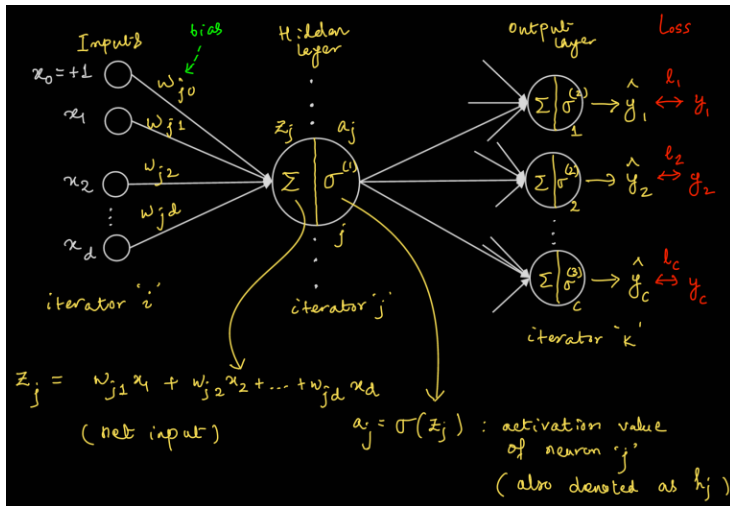 Inputs
bias
Hidden
layer
Output
layer
Loss
x₀ = +1
w_j0
x₁
w_j1
x₂
w_j2
⋮
w_jd
x_d
z_j
a_j
Σ σ⁽¹⁾
j
Σ σ⁽²⁾
1
ŷ₁ l₁ y₁
Σ σ⁽²⁾
2
ŷ₂ l₂ y₂
⋮
Σ σ⁽³⁾
c
ŷ_c l_c y_c
iterator 'i'
iterator 'j'
iterator 'k'
z_j = w_j1 x₁ + w_j2 x₂ + .... + w_jd x_d
(net input)
a_j = σ(z_j) : activation value
of neuron 'j'
(also denoted as h_j)